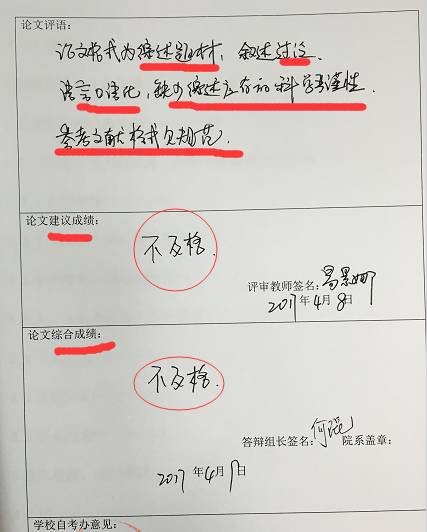 论文评语:
论文格式为综述题材,叙述过泛.
语言口语化,缺少综述应有的科学严谨性.
参考文献格式欠规范.
论文建议成绩:
不及格.
评审教师签名:
2017年4月8日
论文综合成绩:
不及格.
答辩组长签名: 院系盖章:
2017年4月 日
学校自考办意见: